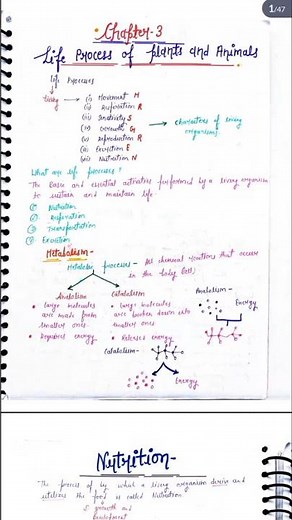 1/47
Chapter-3
Life Process of plants and Animals
Life Processes
living → (i) Movement M
(ii) Respiration R
(iii) Sensitivity S
(iv) Growth G
(v) Reproduction R
(vi) Excretion E
(vii) Nutrition N
→ characters of living organism
What are life processes?
The basic and essential activities performed by a living organism
to sustain and maintain life
① Nutrition
② Respiration
③ Transportation
④ Excretion
Metabolism-
Metabolic processes - All chemical reactions that occur
in the body
Anabolism
• large molecules
are made from
smaller ones
• Required energy
Catabolism
• large molecules
are broken down into
smaller ones.
• Releases energy
Anabolism-
Energy
Catabolism-
Energy
Nutrition-
The process of by which a living organism derive and
utilizes the food is called Nutrition
growth and
development